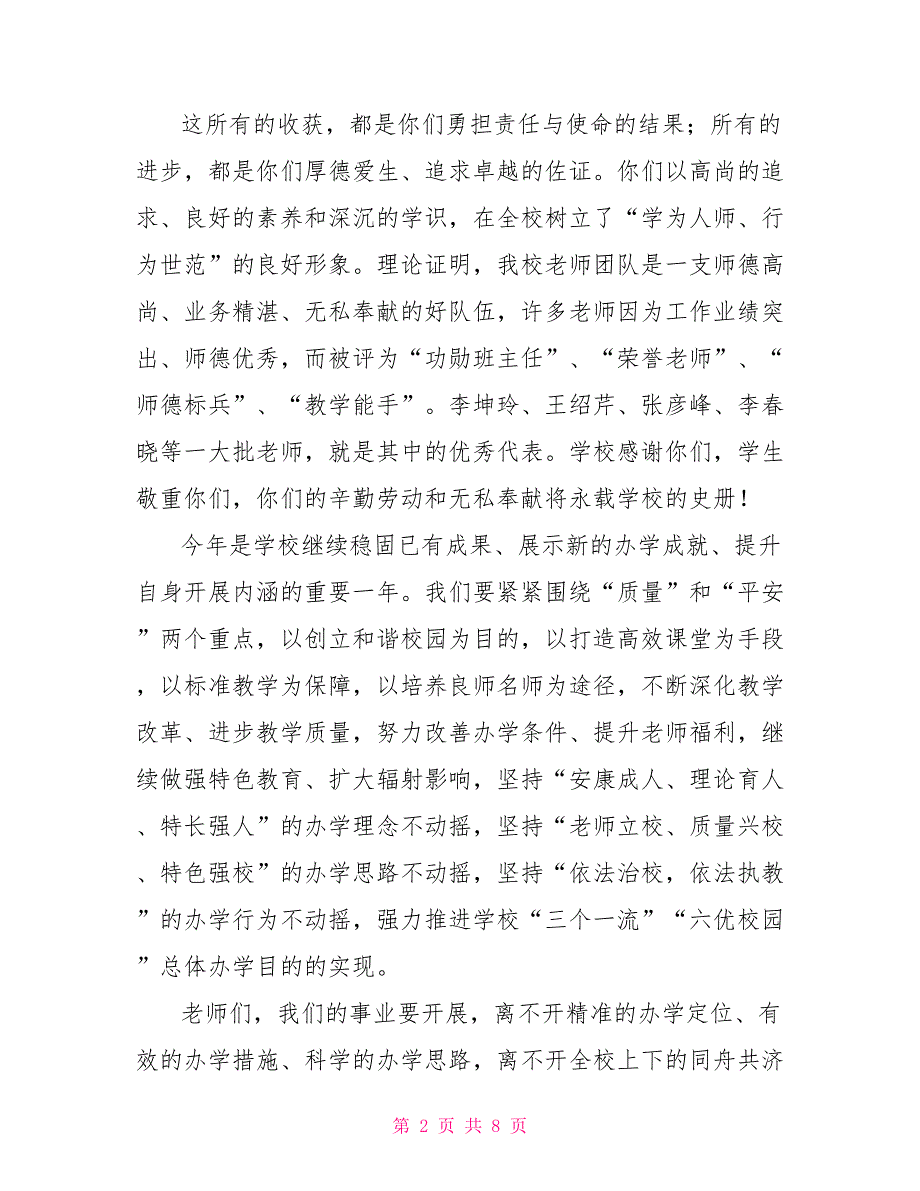 这所有的收获，都是你们勇担责任与使命的结果；所有的
进步，都是你们厚德爱生、追求卓越的佐证。你们以高尚的追
求、良好的素养和深沉的学识，在全校树立了“学为人师、行
为世范”的良好形象。理论证明，我校老师团队是一支师德高
尚、业务精湛、无私奉献的好队伍，许多老师因为工作业绩突
出、师德优秀，而被评为“功勋班主任”、“荣誉老师”、“
师德标兵”、“教学能手”。李坤玲、王绍芹、张彦峰、李春
晓等一大批老师，就是其中的优秀代表。学校感谢你们，学生
敬重你们，你们的辛勤劳动和无私奉献将永载学校的史册！
今年是学校继续稳固已有成果、展示新的办学成就、提升
自身开展内涵的重要一年。我们要紧紧围绕“质量”和“平安
”两个重点，以创立和谐校园为目的，以打造高效课堂为手段
，以标准教学为保障，以培养良师名师为途径，不断深化教学
改革、进步教学质量，努力改善办学条件、提升老师福利，继
续做强特色教育、扩大辐射影响，坚持“安康成人、理论育人
、特长强人”的办学理念不动摇，坚持“老师立校、质量兴校
、特色强校”的办学思路不动摇，坚持“依法治校，依法执教
”的办学行为不动摇，强力推进学校“三个一流”“六优校园
”总体办学目的的实现。
老师们，我们的事业要开展，离不开精准的办学定位、有
效的办学措施、科学的办学思路，离不开全校上下的同舟共济
第 2 页 共 8 页